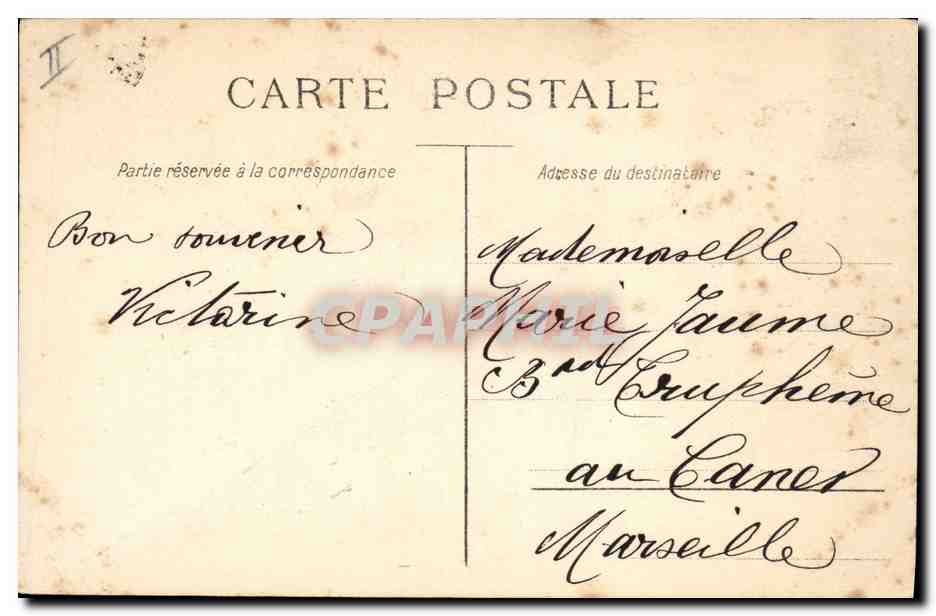 II
CARTE POSTALE
Partie réservée à la correspondance
Adresse du destinataire
Bon souvenir
Victorine
Mademoiselle
Marie Jaume
Bard Truphême
au Canet
Marseille
CPAPHIL